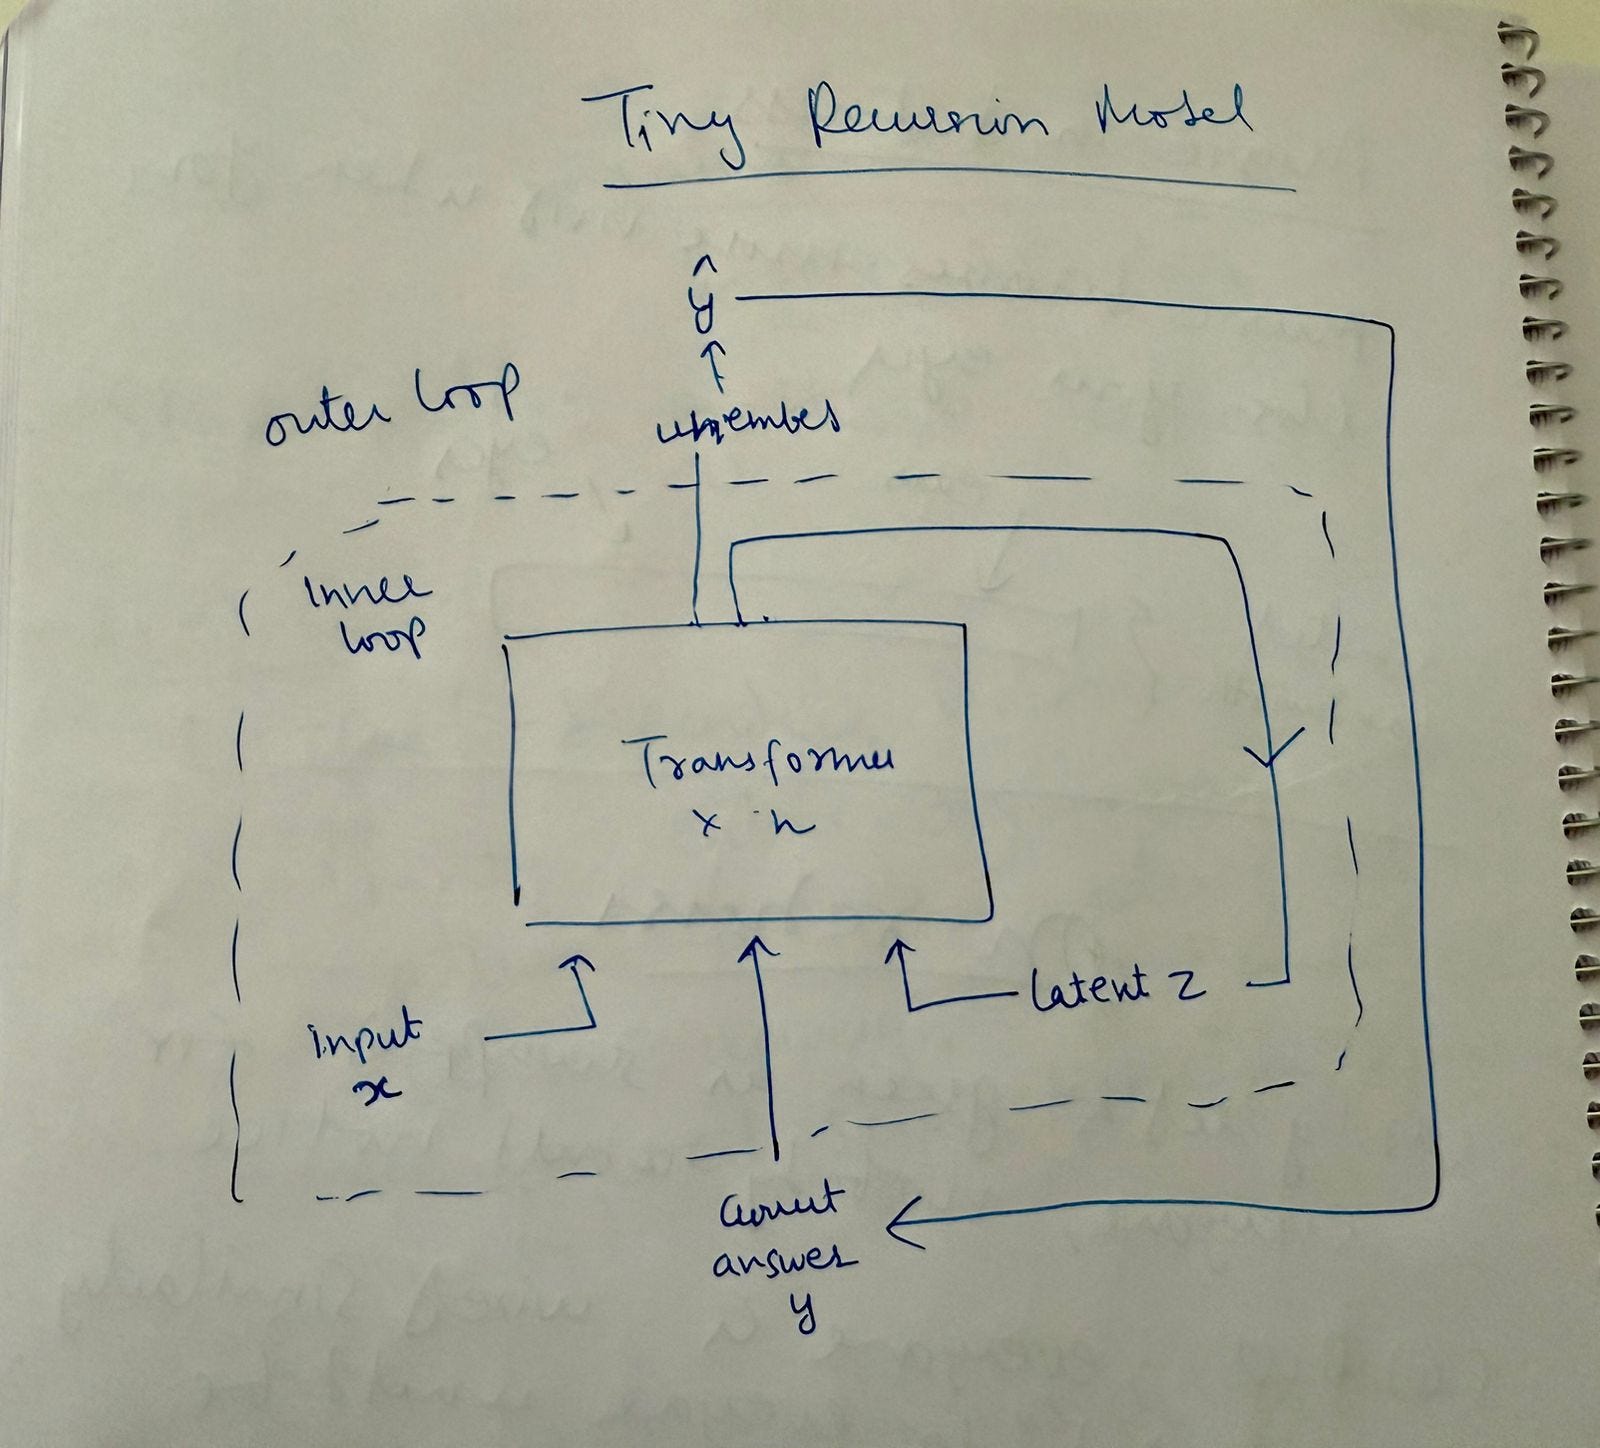 Tiny Recursion Model
ŷ
outer loop
unembed
inner
loop
Transformer
x n
Latent z
input
x
Current
answer
y